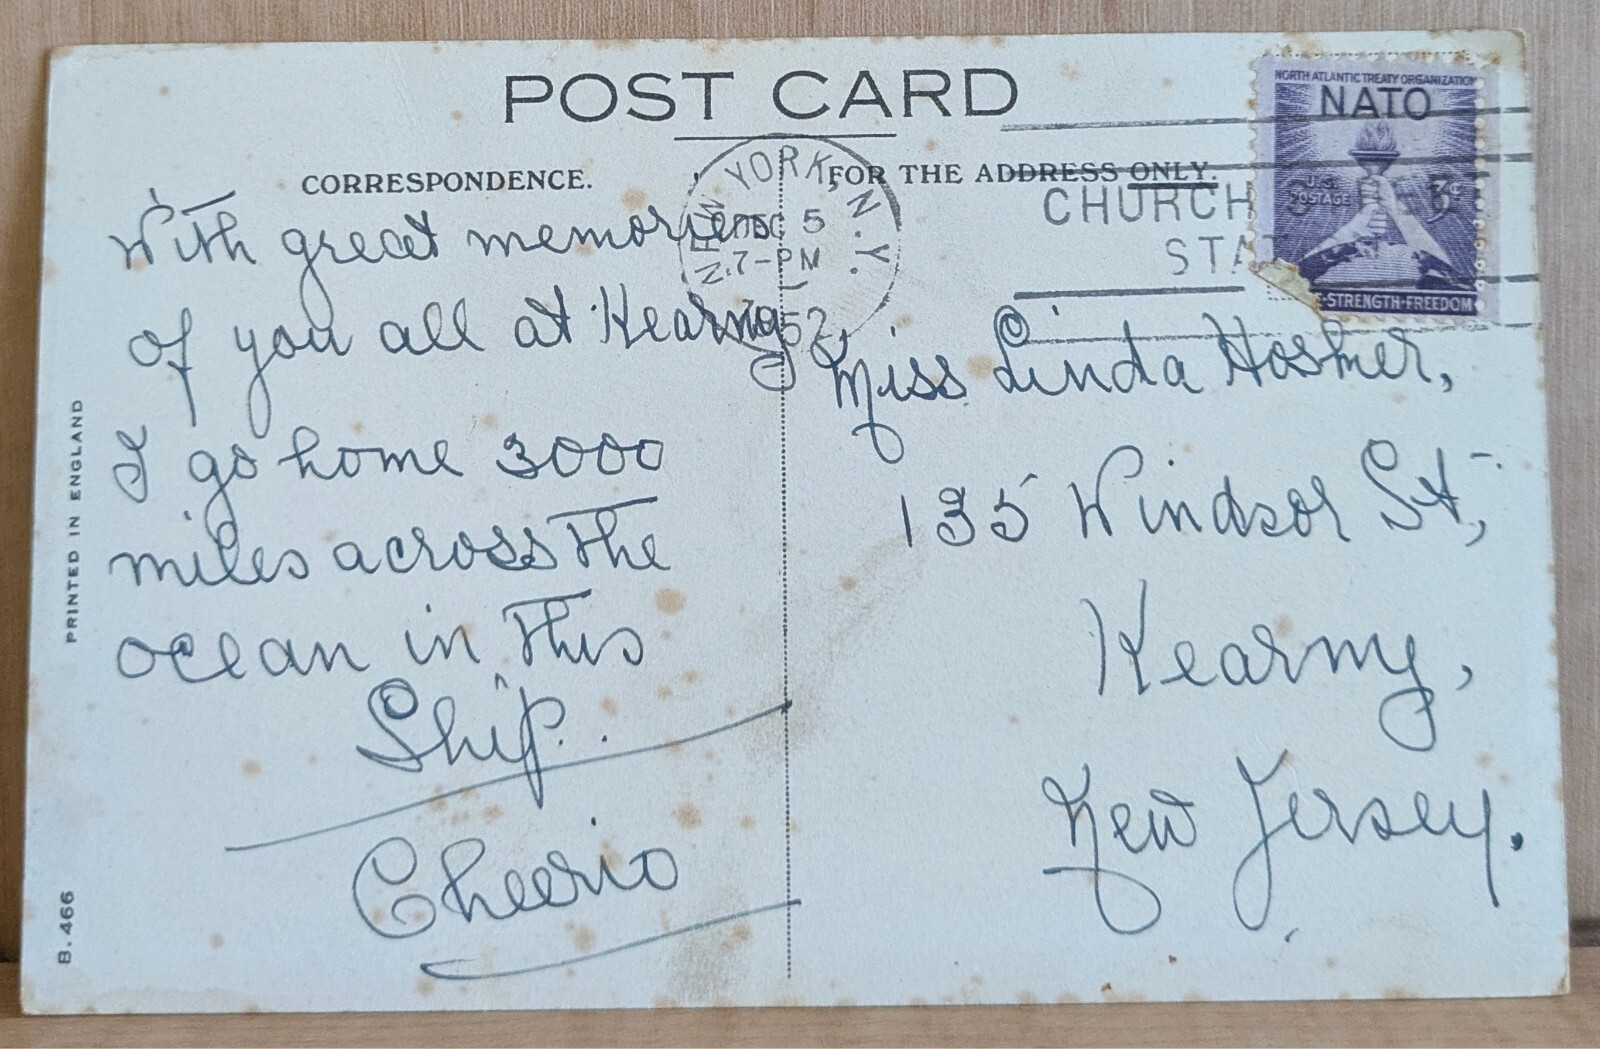 POST CARD
CORRESPONDENCE.
FOR THE ADDRESS ONLY.
NORTH ATLANTIC TREATY ORGANIZATION
NATO
U.S.
POSTAGE
3¢
STRENGTH·FREEDOM
NEW YORK, N.Y.
DEC 5
7-PM
1952
CHURCH
STA
With great memories
of you all at Kearny
I go home 3000
miles across the
ocean in this
Ship.
Cheerio
Miss Linda Hosmer,
135 Windsor St,
Kearny,
New Jersey.
PRINTED IN ENGLAND
B. 466